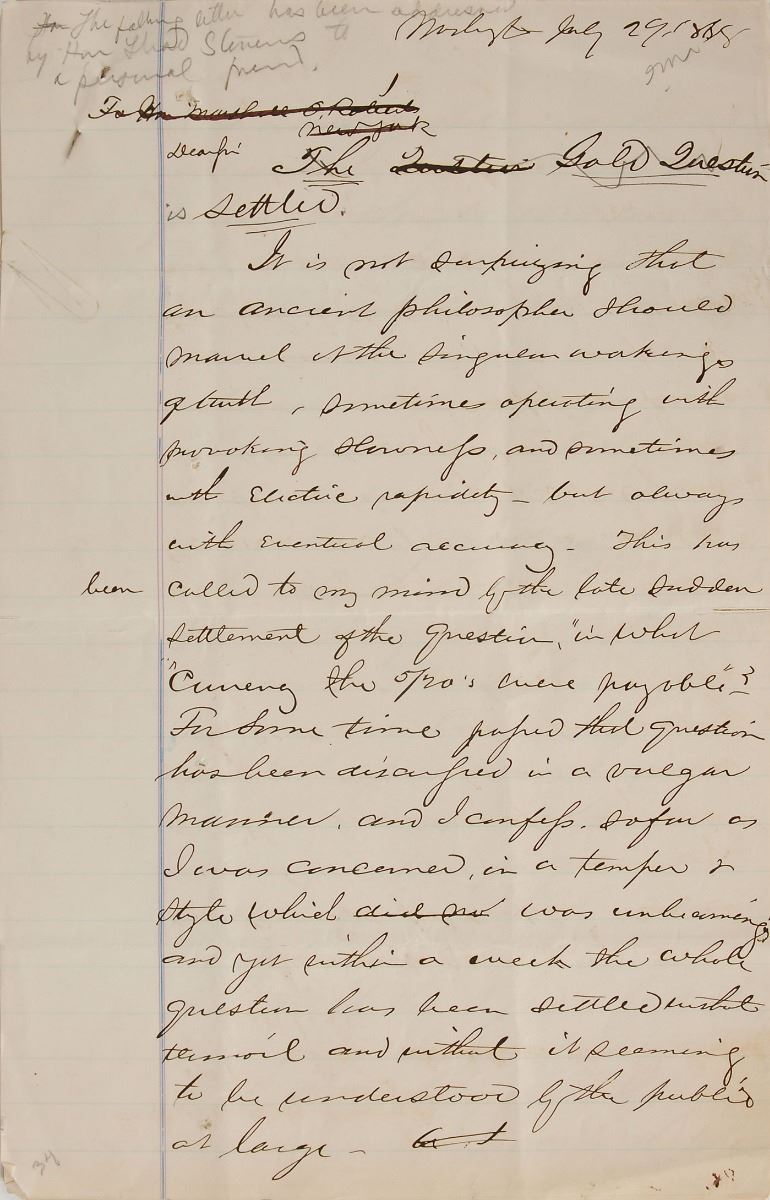 The following letter has been addressed
by Hon Thad Stevens to
a personal friend.
Washington July 29, 1868
To Hon Marshall O. Roberts
New York
Dear Sir
The Question Gold Question
is settled.
It is not surprizing that
an ancient philosopher should
marvel at the singular workings
of truth, sometimes operating with
provoking slowness, and sometimes
with Electric rapidity – but always
with Eventual accuracy – This has
been called to my mind by the late sudden
settlement of the question, "in what
"Currency the 5/20's were payable"?
For some time passed that question
has been discussed in a vulgar
manner, and I confess, so far as
I was concerned, in a temper &
style which did no was unbecoming,
and yet within a week the whole
question has been settled without
turmoil and without it seeming
to be understood by the public
at large –